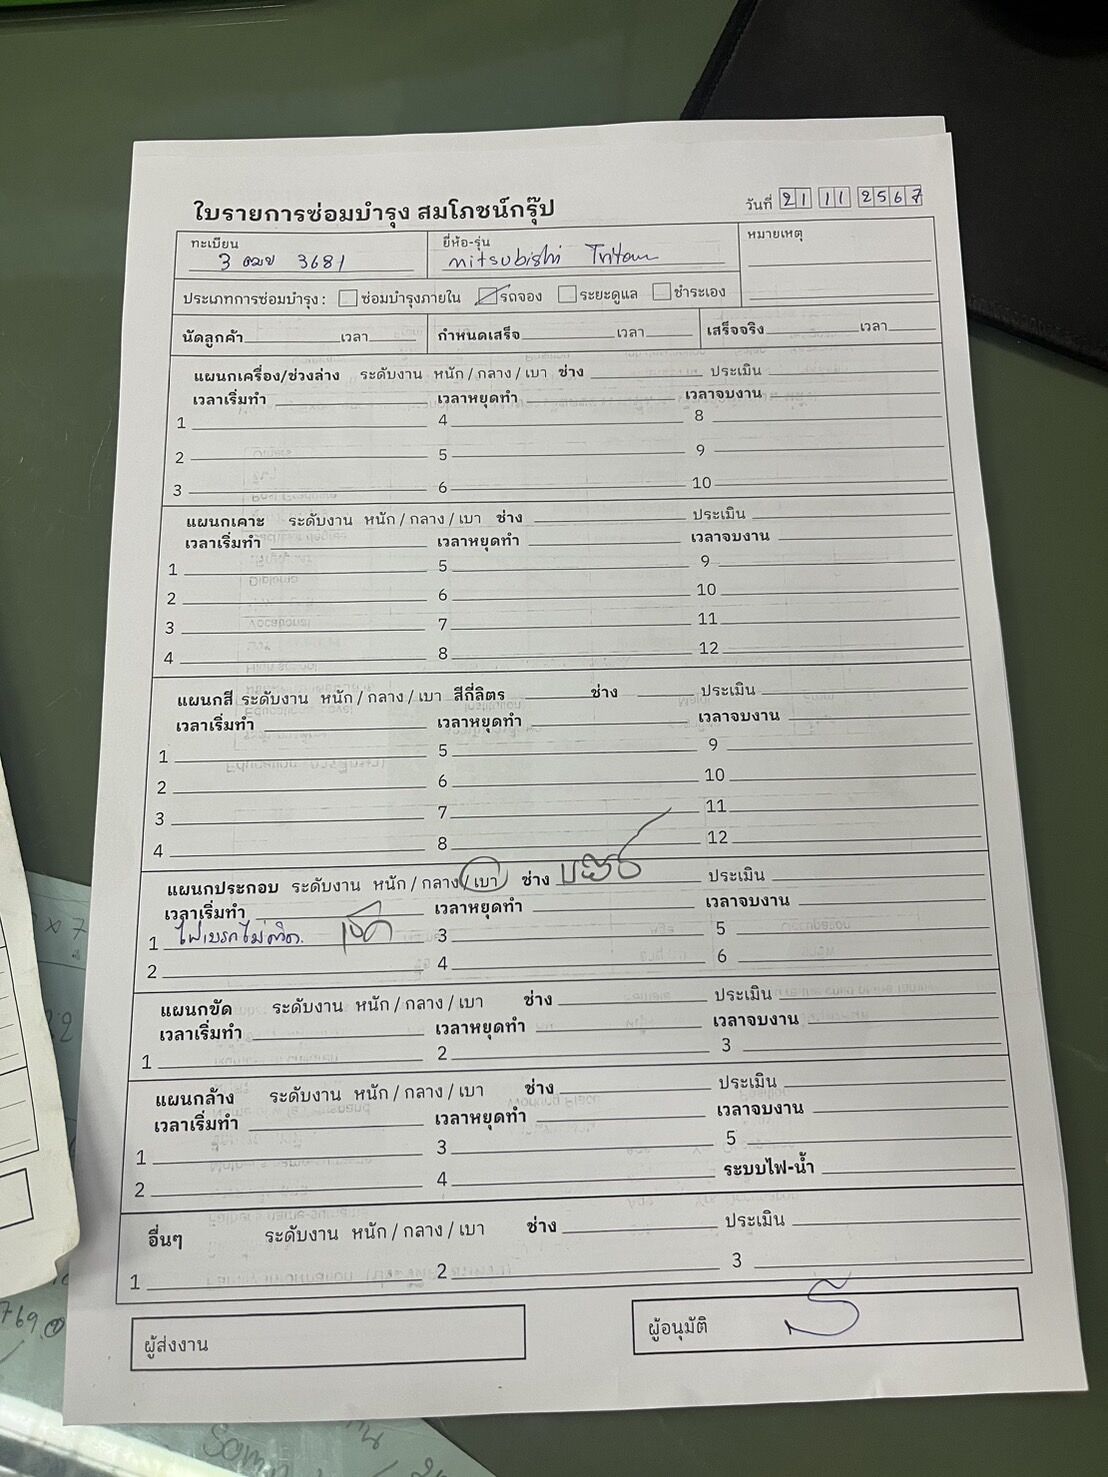 ใบรายการซ่อมบำรุง สมโภชน์กรุ๊ป
วันที่ 21 11 2567
ทะเบียน 3 ฒฆ 3681
ยี่ห้อ-รุ่น mitsubishi Triton
หมายเหตุ
ประเภทการซ่อมบำรุง : ซ่อมบำรุงภายใน รถจอง ระยะดูแล ชำระเอง
นัดลูกค้า เวลา กำหนดเสร็จ เวลา เสร็จจริง เวลา
แผนกเครื่อง/ช่วงล่าง ระดับงาน หนัก / กลาง / เบา ช่าง ประเมิน
เวลาเริ่มทำ เวลาหยุดทำ เวลาจบงาน
1 4 8
2 5 9
3 6 10
แผนกเคาะ ระดับงาน หนัก / กลาง / เบา ช่าง ประเมิน
เวลาเริ่มทำ เวลาหยุดทำ เวลาจบงาน
1 5 9
2 6 10
3 7 11
4 8 12
แผนกสี ระดับงาน หนัก / กลาง / เบา สีกี่ลิตร ช่าง ประเมิน
เวลาเริ่มทำ เวลาหยุดทำ เวลาจบงาน
1 5 9
2 6 10
3 7 11
4 8 12
แผนกประกอบ ระดับงาน หนัก / กลาง / เบา ช่าง ประเมิน
เวลาเริ่มทำ เวลาหยุดทำ เวลาจบงาน
1 ไฟเบรกไม่ติด. 3 5
2 4 6
แผนกขัด ระดับงาน หนัก / กลาง / เบา ช่าง ประเมิน
เวลาเริ่มทำ เวลาหยุดทำ เวลาจบงาน
1 2 3
แผนกล้าง ระดับงาน หนัก / กลาง / เบา ช่าง ประเมิน
เวลาเริ่มทำ เวลาหยุดทำ เวลาจบงาน
1 3 5
2 4 ระบบไฟ-น้ำ
อื่นๆ ระดับงาน หนัก / กลาง / เบา ช่าง ประเมิน
1 2 3
ผู้ส่งงาน
ผู้อนุมัติ